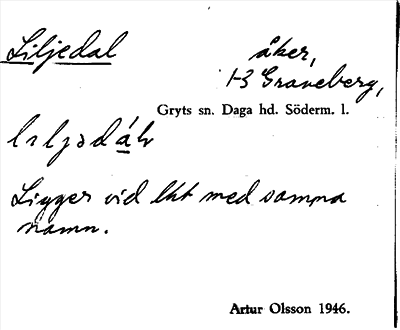 Liljedal
åker,
1-3 Graneberg,
Gryts sn. Daga hd. Söderm. l.
Ligger vid lht med samma
namn.
Artur Olsson 1946.